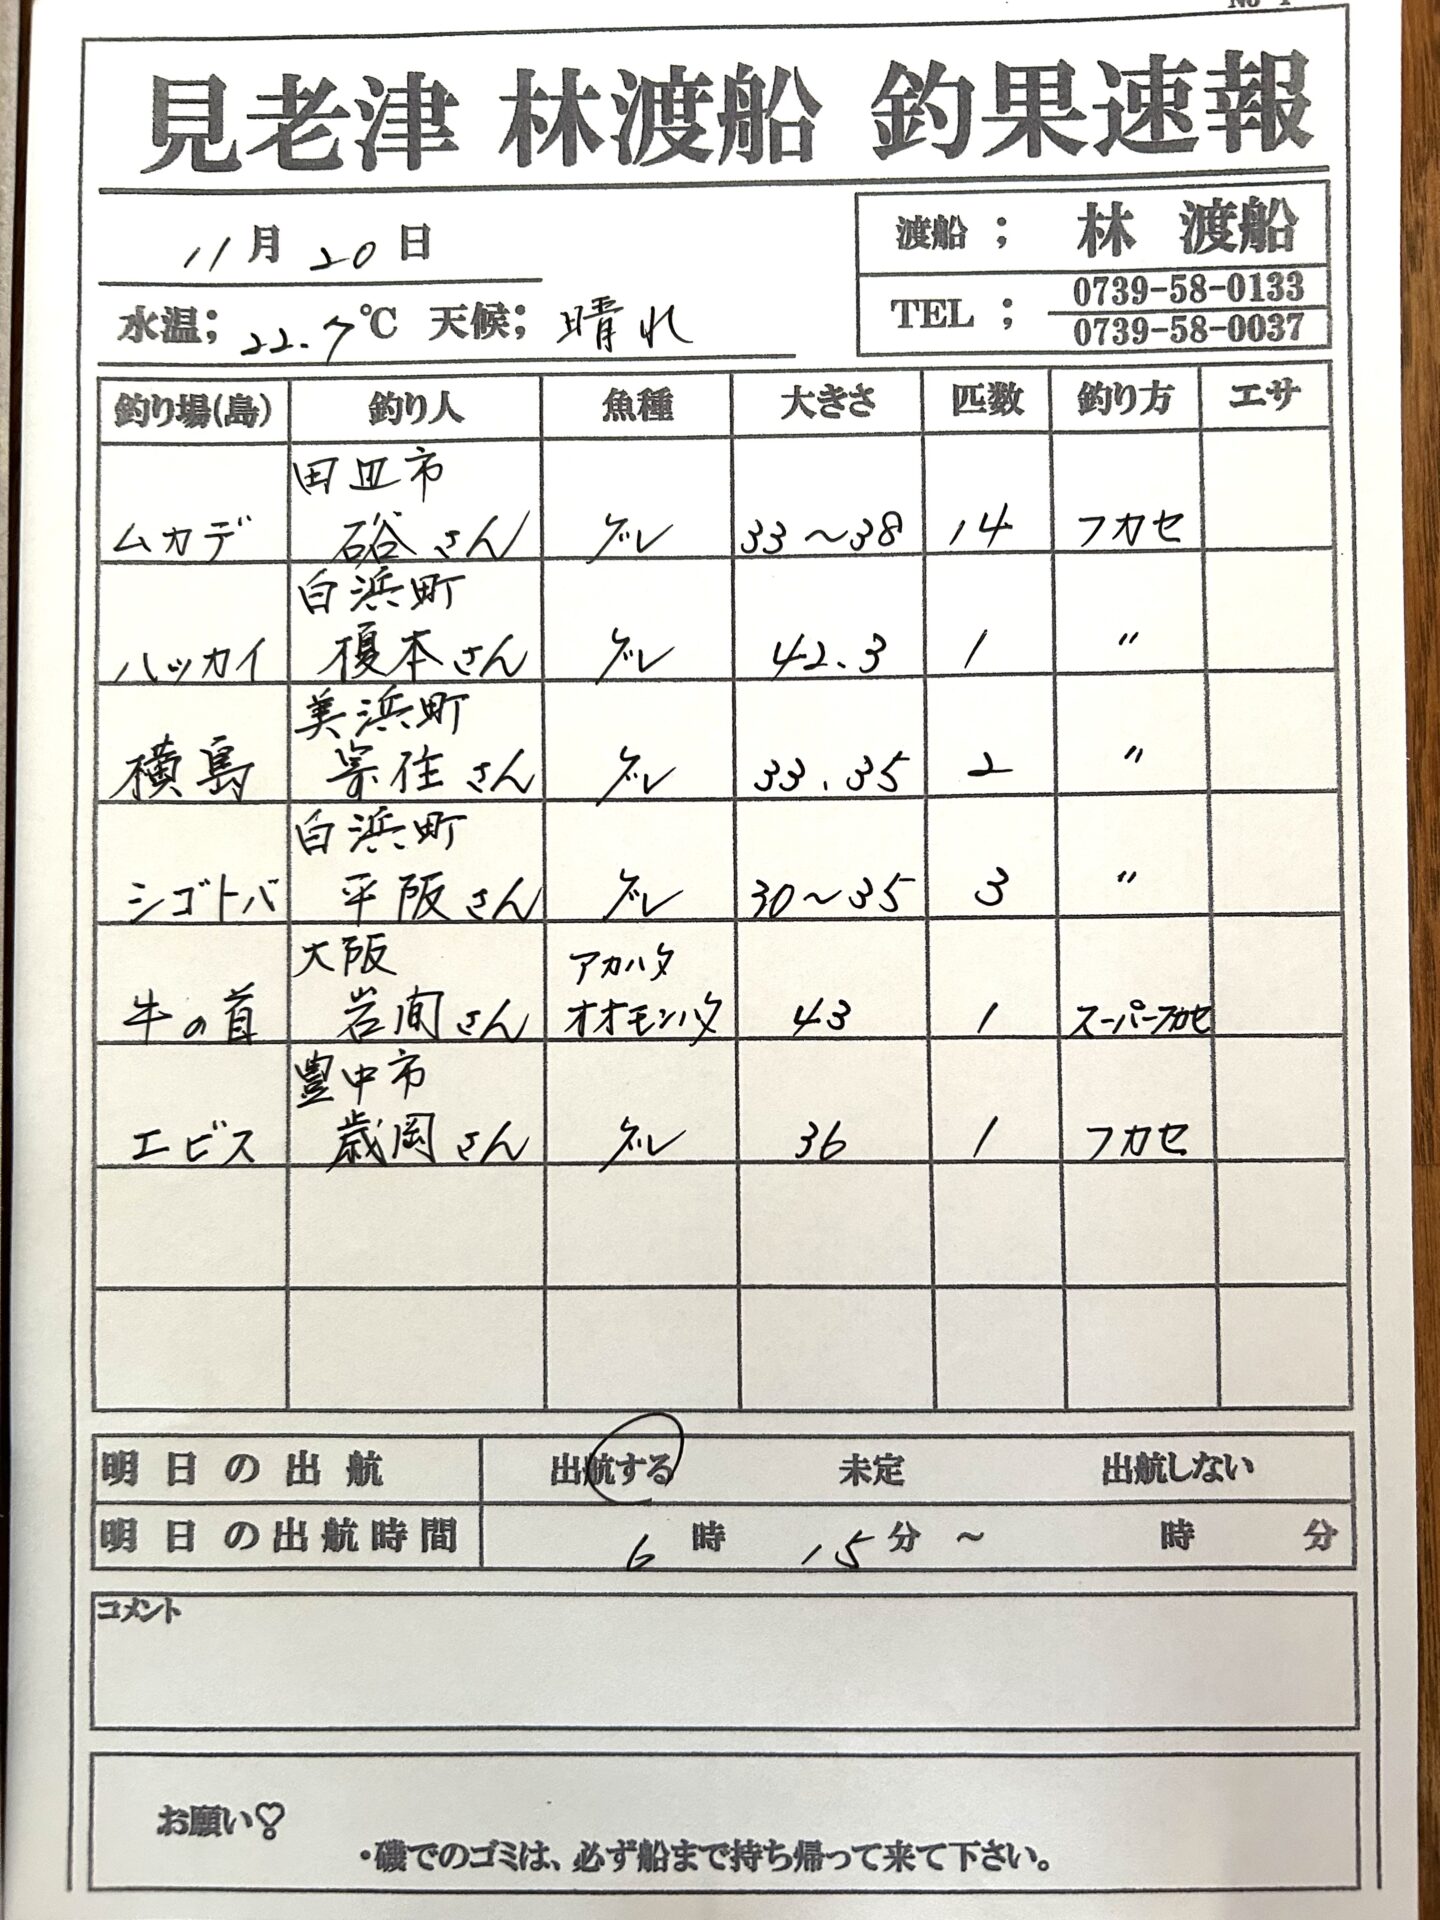 見老津 林渡船 釣果速報
11月20日
渡船； 林 渡船
水温；22.7℃ 天候；晴れ
TEL； 0739-58-0133
0739-58-0037
釣り場(島) 釣り人 魚種 大きさ 匹数 釣り方 エサ
田辺市
ムカデ 硲さん グレ 33〜38 14 フカセ
白浜町
ハッカイ 榎本さん グレ 42.3 1 〃
美浜町
横島 さん グレ 33.35 2 〃
白浜町
シゴトバ 平阪さん グレ 30〜35 3 〃
大阪 アカハタ
牛の首 岩間さん オオモンハタ 43 1 スーパーフカセ
豊中市
エビス 歳岡さん グレ 36 1 フカセ
明日の出航 出航する 未定 出航しない
明日の出航時間 6時15分～ 時 分
コメント
お願い♡
・磯でのゴミは、必ず船まで持ち帰って来て下さい。